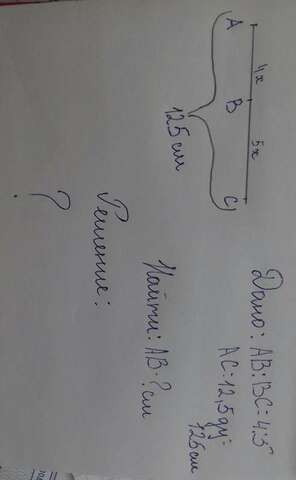 A 4x B 5x C
125 см
Дано: AB:BC=4:5
AC=12,5 дм=
125 см
Найти: AB-? см
Решение:
?